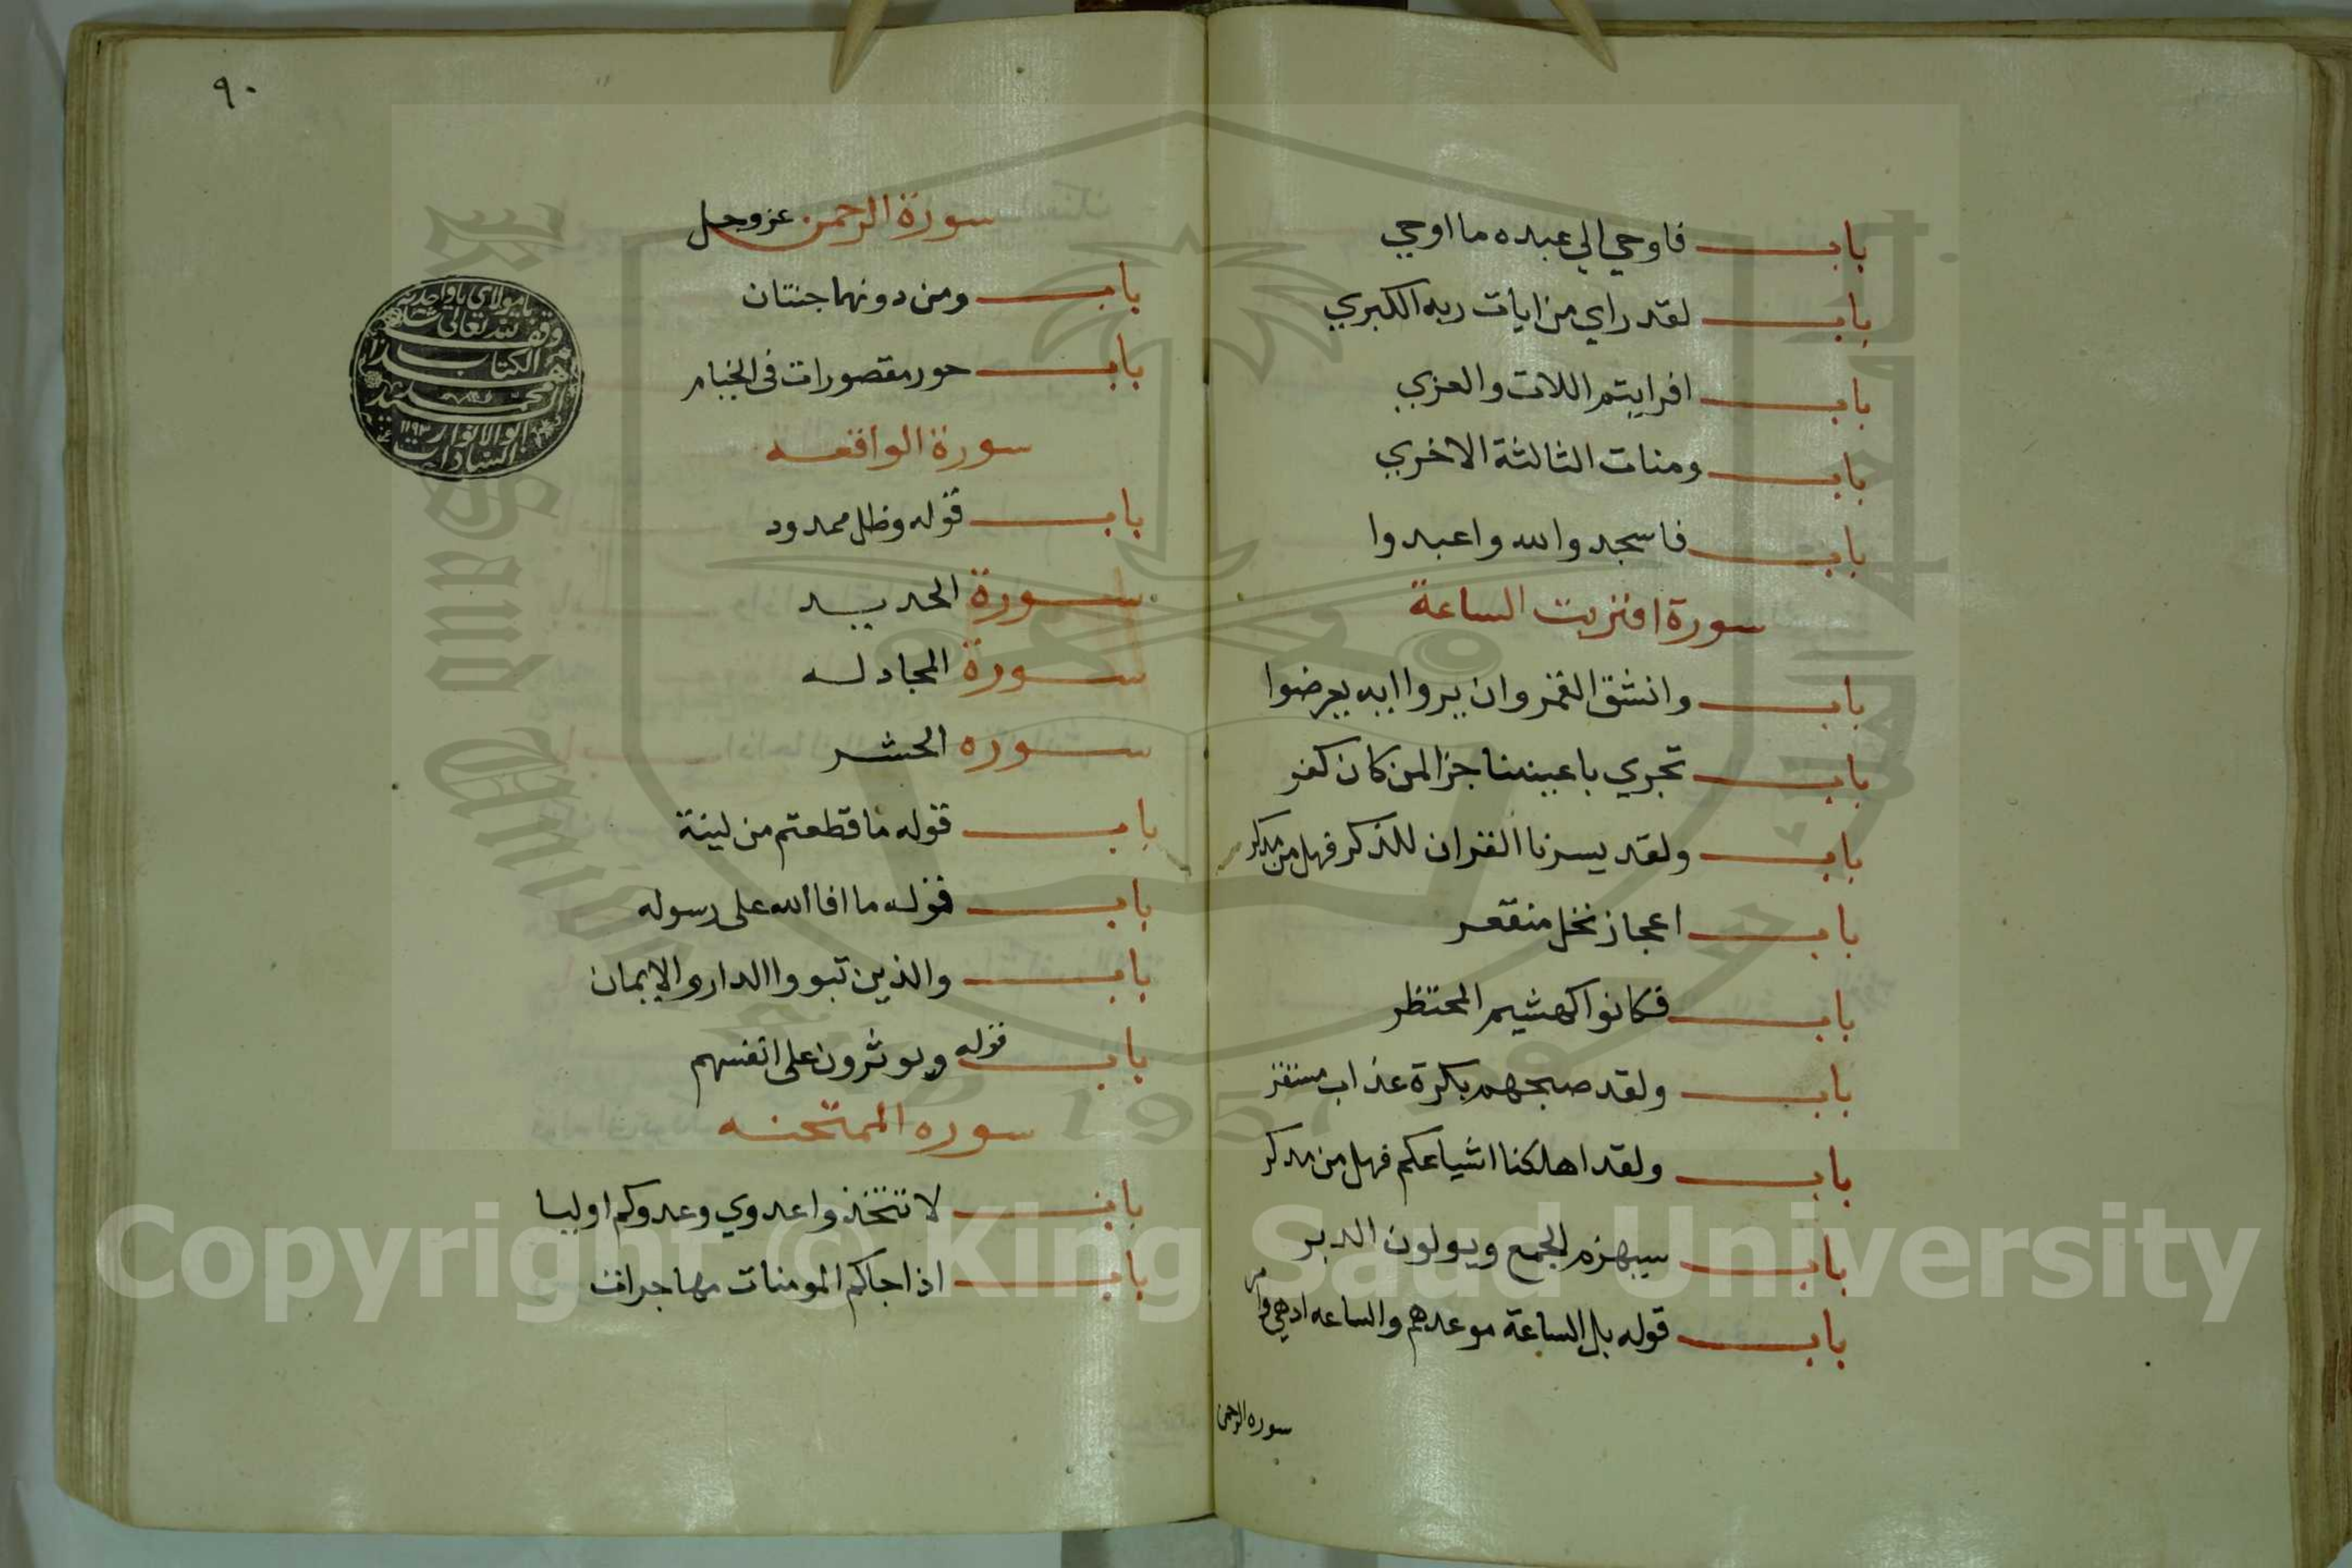 باب فاوحي الي عبده ما اوحي
باب لقد راي من ايات ربه الكبري
باب افرايتم اللات والعزي
باب ومنات الثالثة الاخري
باب فاسجدوا لله واعبدوا
سورة اقتربت الساعة
باب وانشق القمر وان يروا ايه يعرضوا
باب تجري باعيننا جزا لمن كان كفر
باب ولقد يسرنا القران للذكر فهل من مدكر
باب اعجاز نخل منقعر
باب فكانوا كهشيم المحتظر
باب ولقد صبحهم بكرة عذاب مستقر
باب ولقد اهلكنا اشياعكم فهل من مدكر
باب سيهزم الجمع ويولون الدبر
باب قوله بل الساعة موعدهم والساعه ادهي وامر
سوره الرحمن
٩٠
سورة الرحمن عز وجل
باب ومن دونهما جنتان
باب حور مقصورات في الخيام
سورة الواقعه
باب قوله وظل ممدود
سورة الحديد
سورة المجادله
سوره الحشر
باب قوله ما قطعتم من لينة
باب قوله ما افا الله على رسوله
باب والذين تبووا الدار والايمان
باب قوله ويوثرون على انفسهم
سوره الممتحنه
باب لا تتخذوا عدوي وعدوكم اوليا
باب اذا جاكم المومنات مهاجرات
يا مولاي يا واحد
وقف لله تعالى
هذا الكتاب
محمد
ابو الانوار ١١٩٢
السادات
Copyright © King Saud University
1957